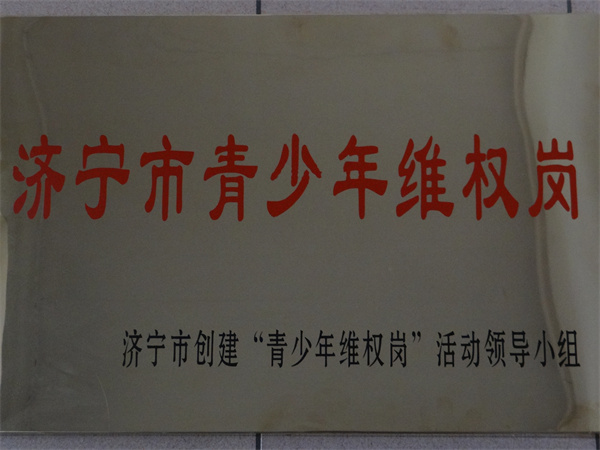 济宁市青少年维权岗
济宁市创建“青少年维权岗”活动领导小组